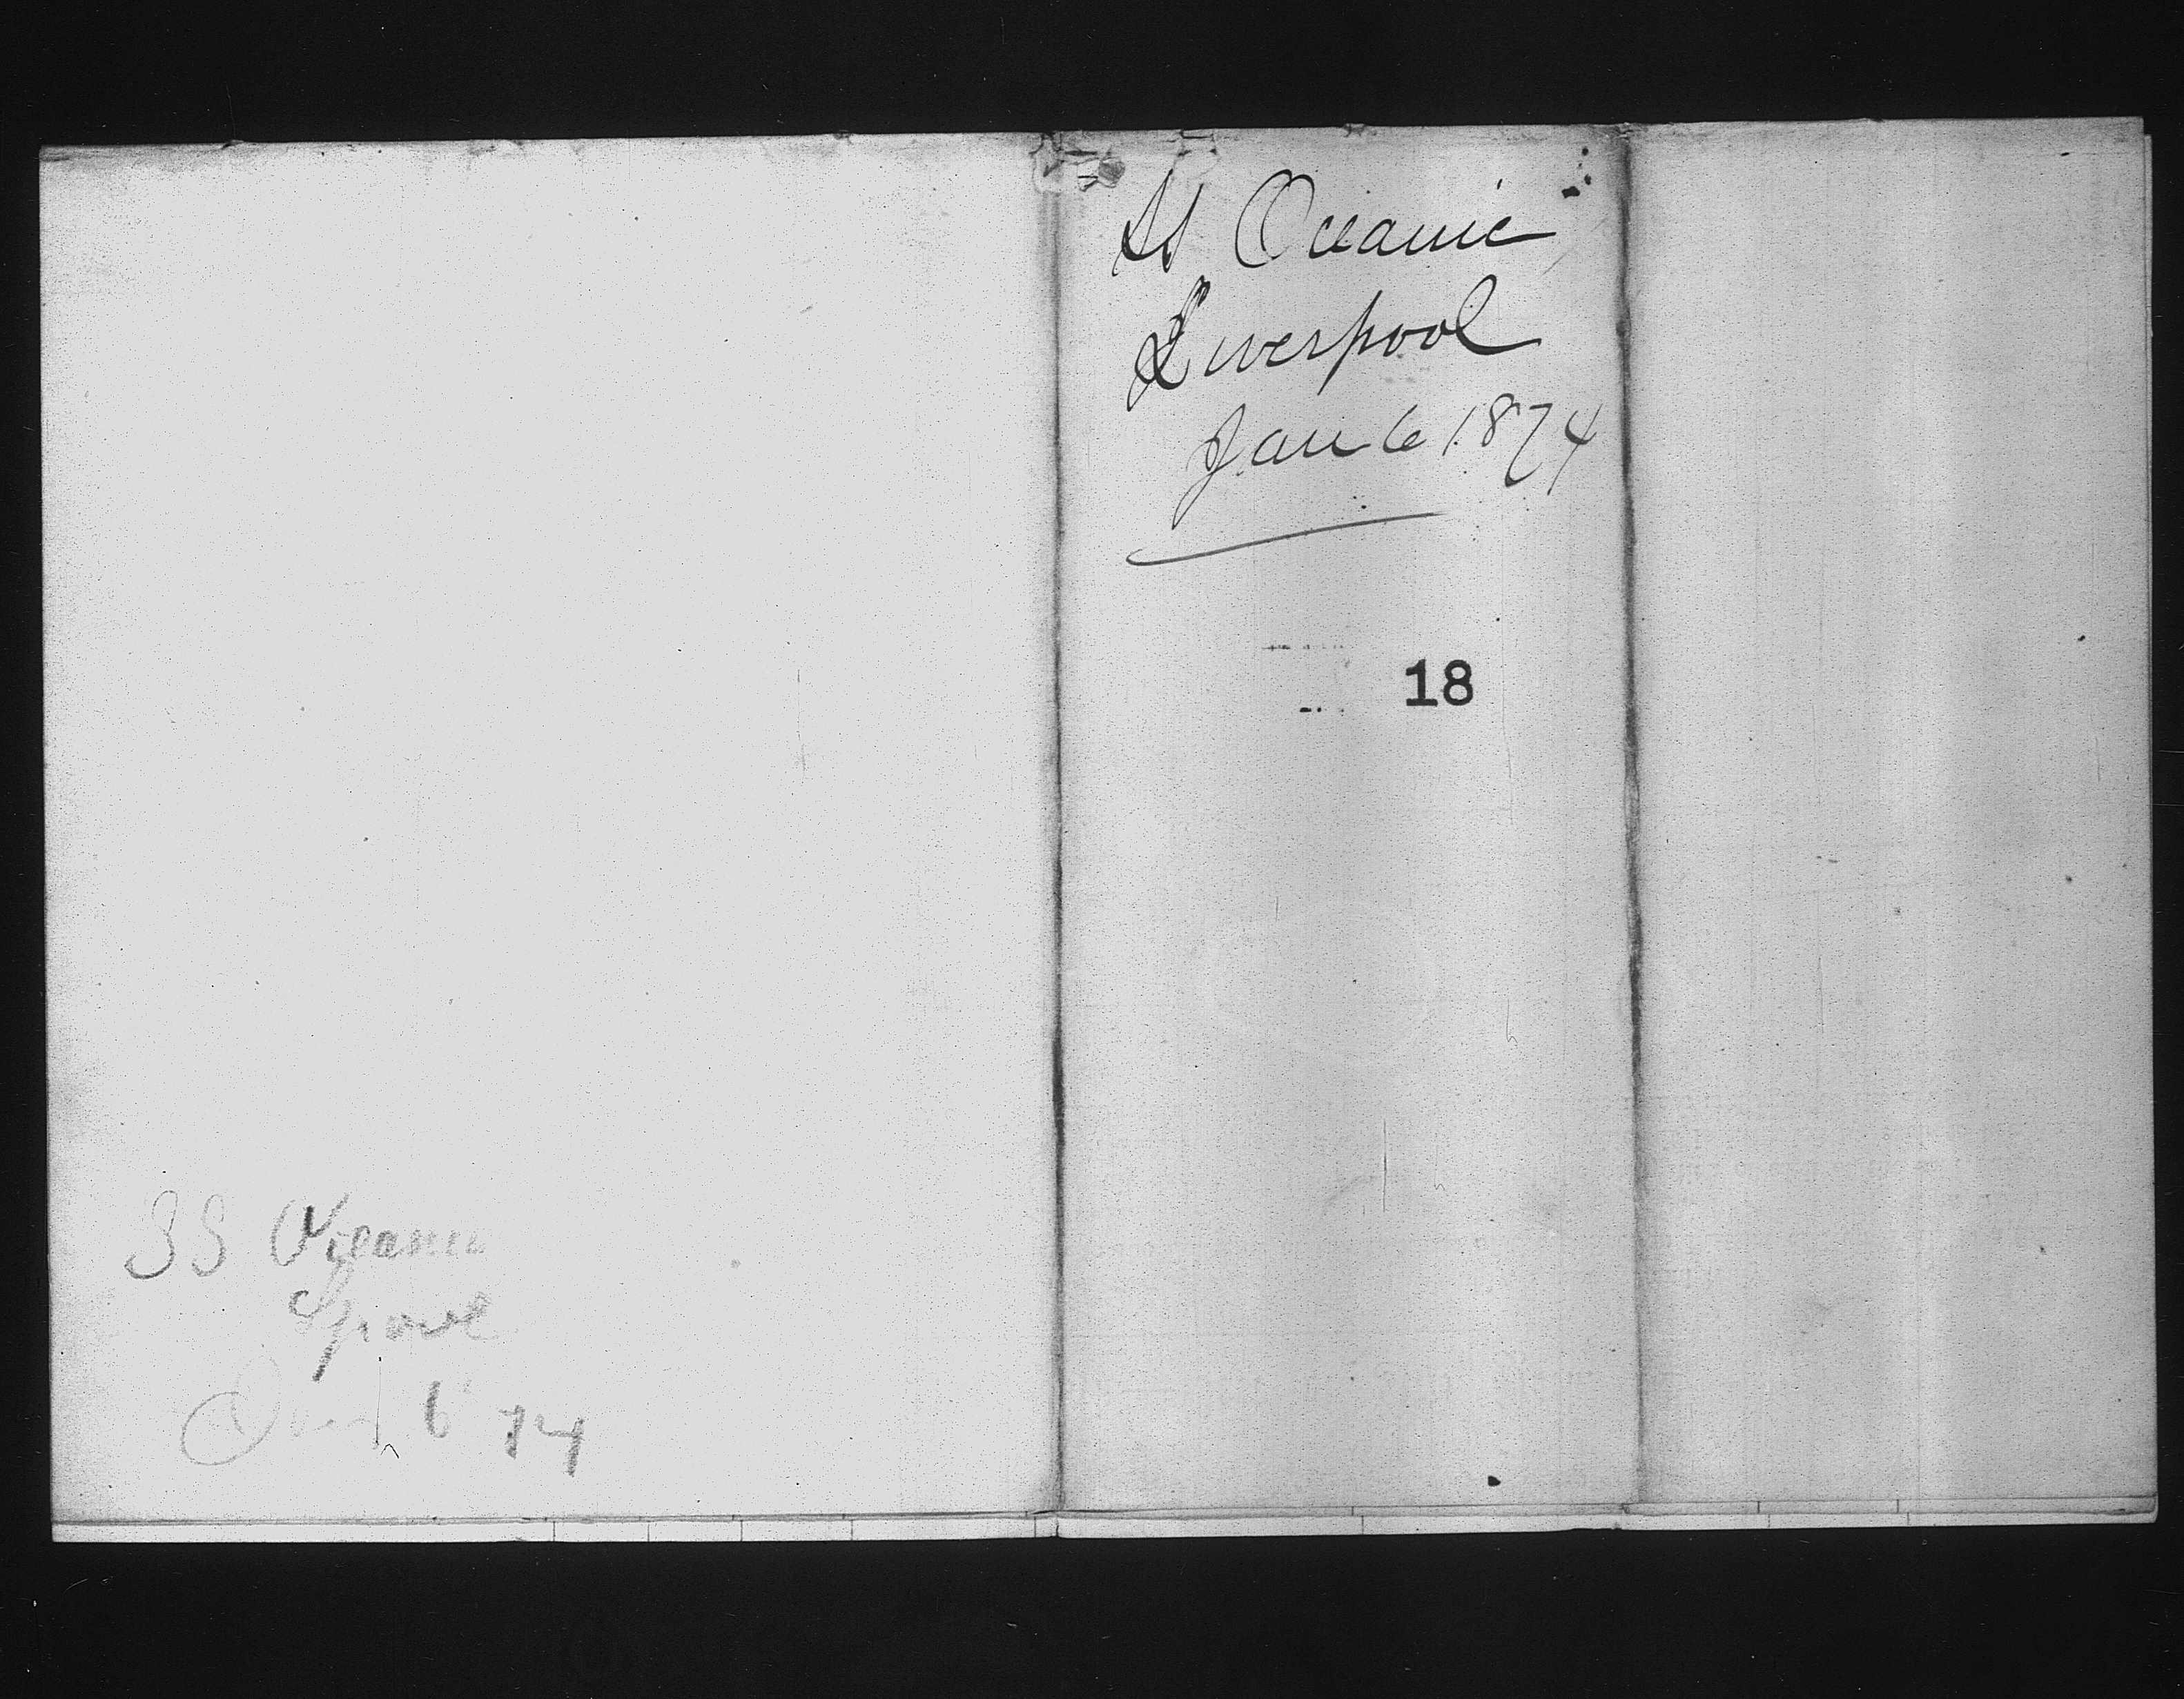 SS Oceanic
Liverpool
Jan 6 1874
18
SS Oceanic
Lpool
6 74